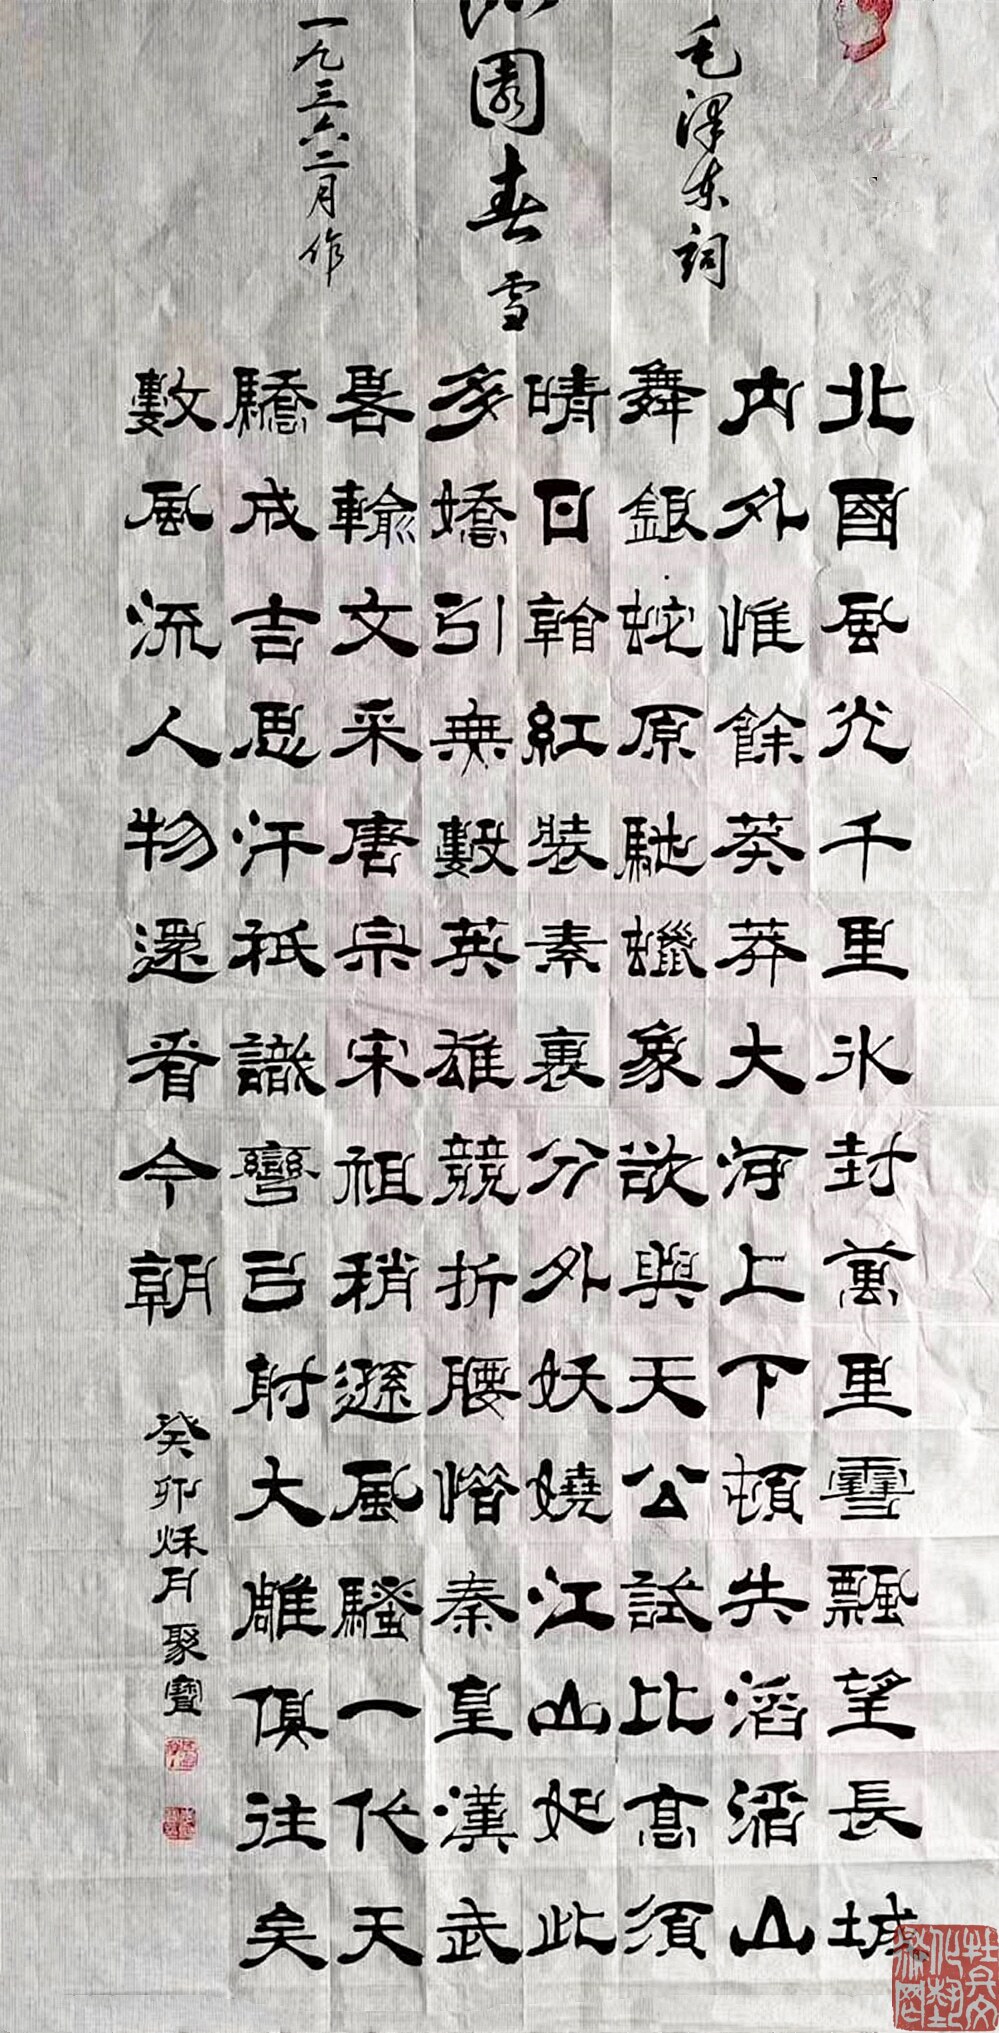 毛澤东詞
園春雪
一九三六二月作
北國風光千里冰封萬里雪飄望長城
内外惟餘莽莽大河上下頓失滔滔山
舞銀蛇原馳蠟象欲與天公試比高須
晴日看紅裝素裹分外妖嬈江山如此
多嬌引無數英雄競折腰惜秦皇漢武
畧輸文采唐宗宋祖稍遜風騷一代天
驕成吉思汗祇識彎弓射大雕俱往矣
數風流人物還看今朝
癸卯秌月聚寶